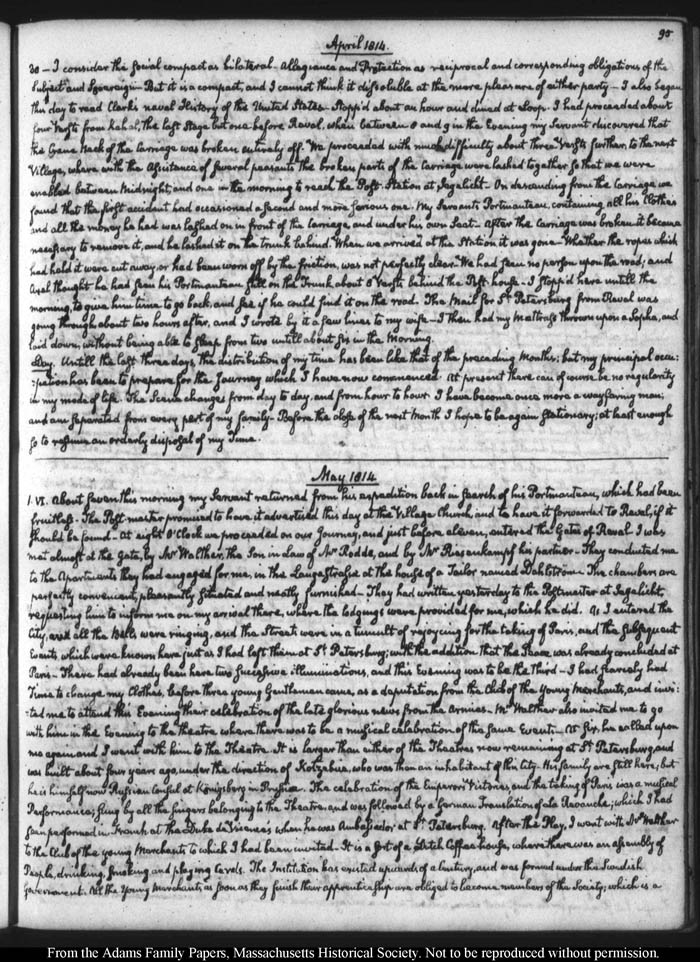 95
April 1814.
30 — I consider the social compact as bilateral. Allegiance and Protection as reciprocal and corresponding obligations of the
Subject and Sovereign — But it is a compact, and I cannot think it dissoluble at the mere pleasure of either party — I also began
this day to read Clark's naval History of the United States. Stopp'd about an hour and dined at Loop. I had proceeded about
four Versts from Kahal, the last Stage but one before Reval, when between 8 and 9 in the Evening my Servant discovered that
the Crane Neck of the Carriage was broken entirely off. We proceeded with much difficulty about three Versts further, to the next
Village, where with the Assistance of several peasants the broken parts of the Carriage were lashed together so that we were
enabled between Midnight, and one in the morning to reach the Post-Station at Jegalicht — On descending from the Carriage we
found that the first accident had occasioned a second and more serious one — My Servants Portmanteau, containing all his Clothes
and all the money he had was lashed on in front of the Carriage, and under his own Seat — After the Carriage was broken it became
necessary to remove it, and he lashed it on the trunk behind. When we arrived at the Station it was gone — Whether the ropes which
had held it were cut away, or had been worn off by the friction, was not perfectly clear. We had seen no person upon the road; and
Axel thought he had seen his Portmanteau still on the Trunk about 8 Versts behind the Post-house — I stopp'd here untill the
morning, to give him time to go back and see if he could find it on the road. The Mail for St. Petersburg from Reval was
going through, about two hours after, and I wrote by it a few lines to my wife — I then had my Mattrass thrown upon a Sopha, and
laid down, without being able to sleep from two untill about six in the Morning.
Day. Untill the last three days, the distribution of my time has been like that of the preceding Months; but my principal occu:
:pation has been to prepare for the Journey which I have now commenced. At present there can of course be no regularity
in my mode of life. The Scene changes from day to day, and from hour to hour. I have become once more a wayfaring man;
and am separated from every part of my family — Before the close of the next Month I hope to be again stationary; at least enough
so to resume an orderly disposal of my Time.
May 1814
1. VI. About seven this morning my Servant returned from his expedition back in search of his Portmanteau, which had been
fruitless — The Post-master promised to have it advertised this day at the Village Church, and to have it forwarded to Reval, if it
should be found — At eight O'Clock we proceeded on our Journey, and just before eleven, entered the Gates of Reval. I was
met almost at the Gate, by Mr Walther, the Son in Law of Mr Rodde, and by Mr Riesenkampf his partner — They conducted me
to the Apartments they had engaged for me, in the Langestrasse at the house of a Tailor named Dahlström — The chambers are
perfectly convenient, pleasantly situated and neatly furnished — They had written yesterday to the Postmaster at Jegalicht,
requesting him to inform me on my arrival there, where the lodgings were provided for me, which he did. As I entered the
City, all the Bells were ringing, and the Streets were in a tumult of rejoycing for the taking of Paris, and the subsequent
Events which were known here just as I had left them at St. Petersburg; with the addition that the Peace was already concluded at
Paris — There had already been here two successive illuminations, and this Evening was to be the third — I had scarcely had
Time to change my Clothes, before three young Gentlemen came, as a deputation from the Club of the Young Merchants, and invi:
:ted me to attend this Evening their celebration of the late glorious news from the Armies — Mr Walther also invited me to go
with him in the Evening to the theatre where there was to be a musical celebration of the same Event — At six, he called upon
me again and I went with him to the Theatre. It is larger than either of the Theatres now remaining at St Petersburg, and
was built about four years ago, under the direction of Kotzebue, who was then an inhabitant of this City. His family are still here; but
he is himself now Russian Consul at Königsberg in Prussia. The celebration of the Emperor's Victories and the taking of Paris was a musical
Performance; sung by all the singers belonging to the Theatre. and was followed by a German Translation of La Revanche; which I had
seen performed in French at the Duke de Vicenza's when he was Ambassador at St. Petersburg. After the Play, I went with Mr Walther
to the Club of the young Merchants to which I had been invited — It is a sort of a Dutch Coffee-house, where there was an assembly of
People, drinking, smoking and playing Cards. The Institution has existed upwards of a Century, and was formed under the Swedish
Government. All the Young Merchants, as soon as they finish their apprenticeship are obliged to become members of the Society; which is a
From the Adams Family Papers, Massachusetts Historical Society. Not to be reproduced without permission.